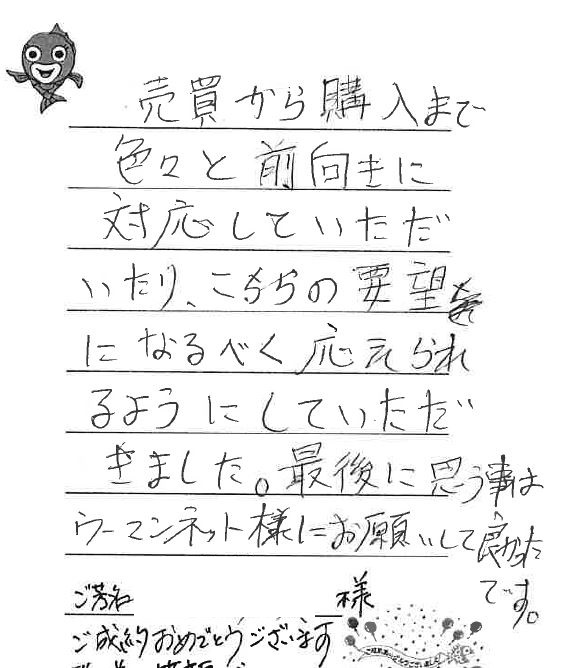 売買から購入まで
色々と前向きに
対応していただ
いたり、こちらの要望
になるべく応えられ
るようにしていただ
きました。最後に思う事は
ウーマンネット様にお願いして良かった
です。
ご芳名 様
ご成約おめでとうございます